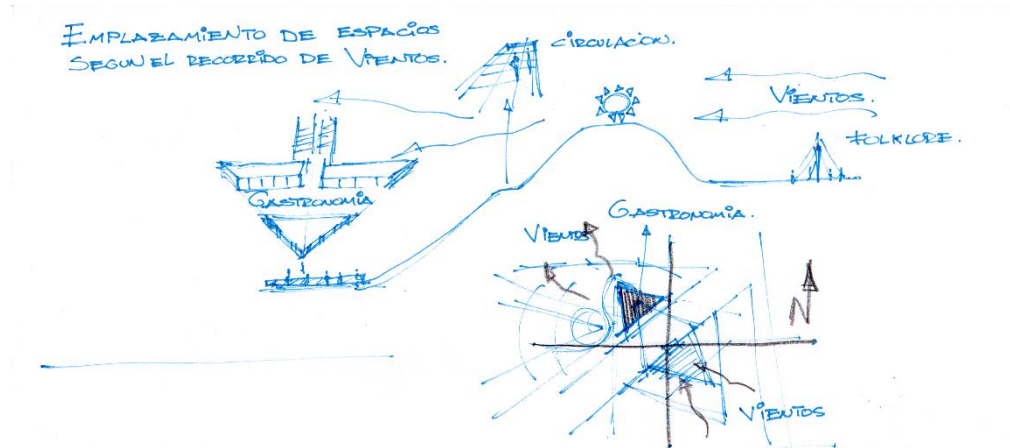 EMPLAZAMIENTO DE ESPACIOS
SEGUN EL RECORRIDO DE VIENTOS.
CIRCULACION.
VIENTOS.
FOLKLORE.
GASTRONOMIA
GASTRONOMIA.
VIENTOS
N
VIENTOS